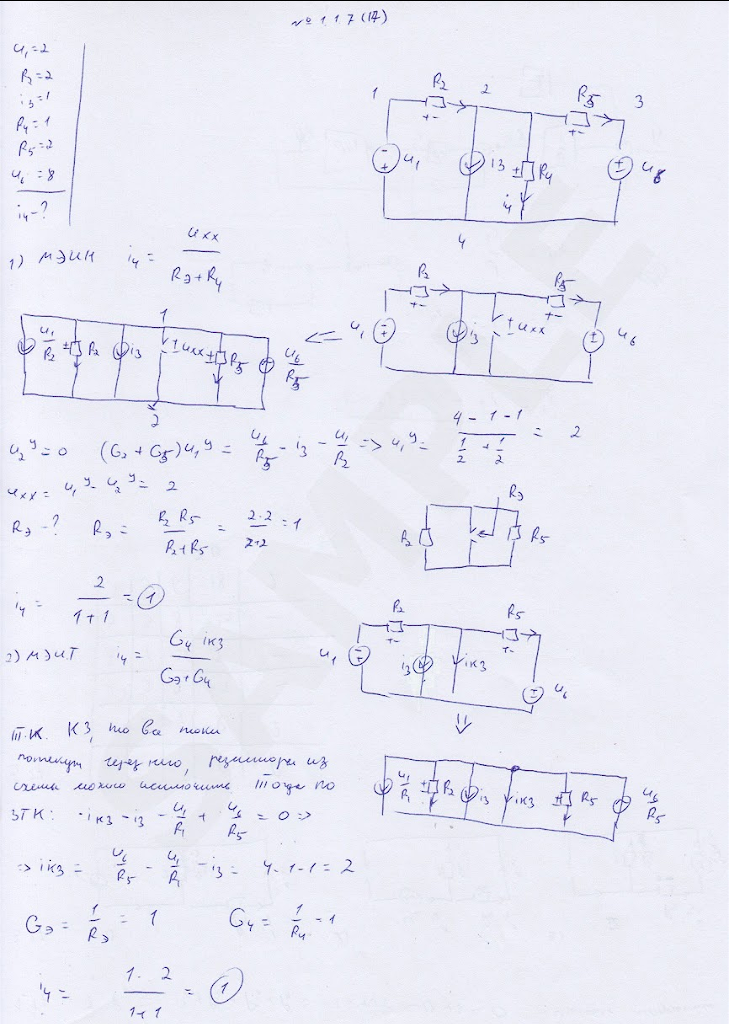 № 1.1.7 (17)
u₁=2
R₂=2
i₃=1
R₄=1
R₅=2
u₆=8
i₄-?
1 R₂ 2 R₅ 3
+- +-
u₁ i₃ ± R₄ ± u₆
i₄
4
1) МЭИН i₄ = uхх / (Rэ+R₄)
R₂ R₅
+- +-
u₁ i₃ ± uхх ± u₆
1
u₁/R₂ ± R₂ i₃ ± uхх ± R₅ u₆/R₅
2
u₂ʸ=0 (G₂+G₅)u₁ʸ = u₆/R₅ - i₃ - u₁/R₂ => u₁ʸ = (4-1-1) / (1/2 + 1/2) = 2
uхх = u₁ʸ - u₂ʸ = 2
Rэ -? Rэ = R₂ R₅ / (R₂+R₅) = 2·2 / (2+2) = 1
Rэ
R₂ R₅
i₄ = 2 / (1+1) = 1
2) МЭИТ i₄ = G₄ iкз / (Gэ+G₄)
R₂ R₅
+- +-
u₁ i₃ iкз ± u₆
Т.к. КЗ, то все токи
потекут через него, резисторы из
схемы можно исключить Тогда по
ЗТК: -iкз - i₃ - u₁/R₁ + u₆/R₅ = 0 =>
u₁/R₁ ± R₂ i₃ iкз ± R₅ u₆/R₅
=> iкз = u₆/R₅ - u₁/R₁ - i₃ = 4-1-1 = 2
Gэ = 1/Rэ = 1 G₄ = 1/R₄ = 1
i₄ = 1·2 / (1+1) = 1
SAMPLE